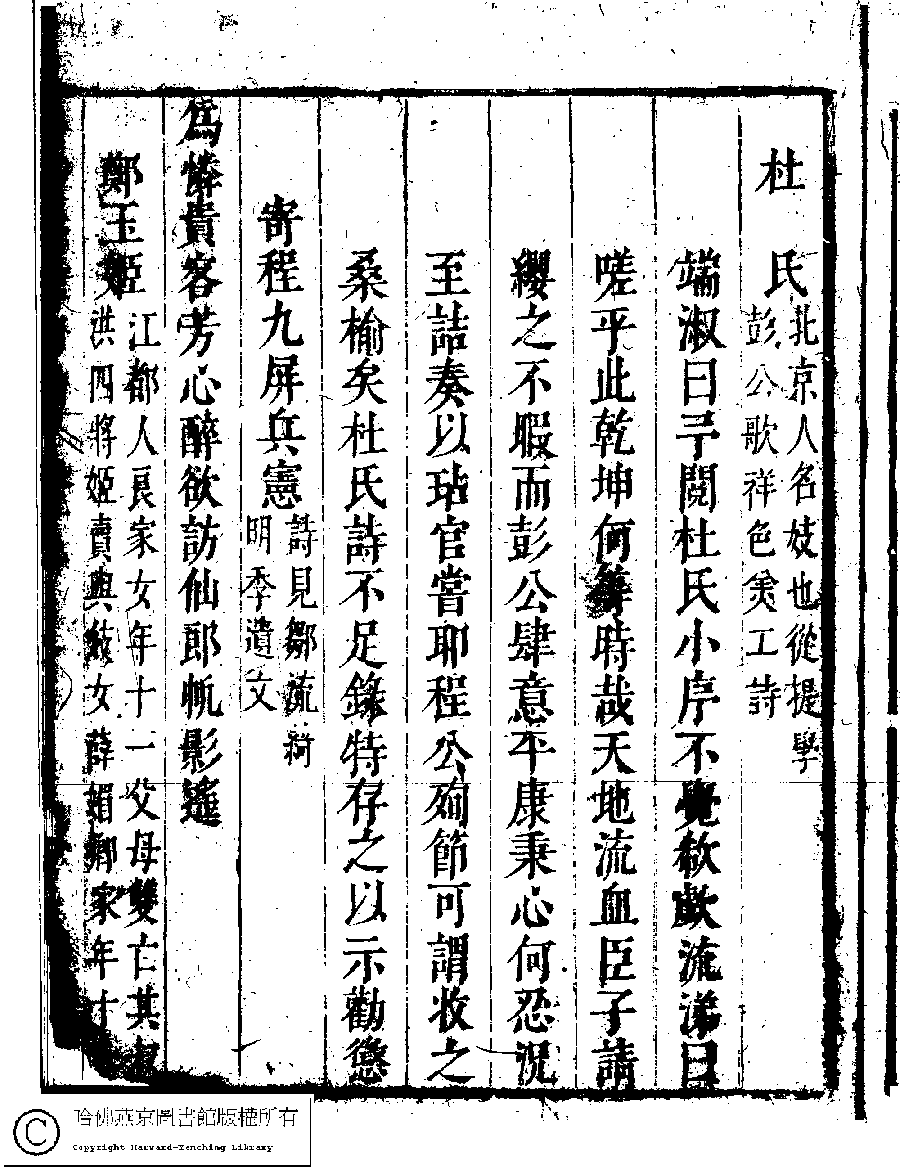 杜氏
北京人名妓也從提學
彭公歌祥色美工詩
端淑曰予閱杜氏小序不覺欷歔流涕曰
嗟乎此乾坤何等時哉天地流血臣子請
纓之不暇而彭公肆意平康秉心何忍況
至詰奏以玷官嘗耶程公殉節可謂收之
桑榆矣杜氏詩不足錄特存之以示勸懲
寄程九屏兵憲
詩見鄒流綺
明季遺文
為憐貴客芳心醉欲訪仙郎帆影遙
鄭玉姬
江都人良家女年十一父母雙亡其叔
洪四將姬賣與妓女薛媚卿家年十
哈佛燕京圖書館版權所有
Copyright Harvard-Yenching Library